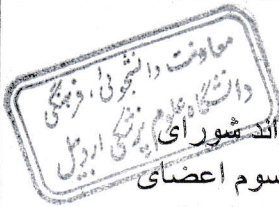 معاونت دانشجویی، فرهنگی
دانشگاه علوم پزشکی اردبیل
اند شورای
سوم اعضای